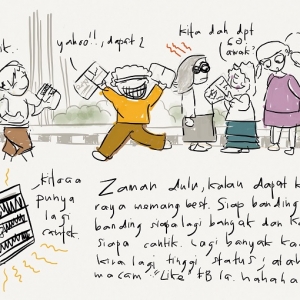 yahoo!!, dapat 2
kita dah dpt
60!
awak?
kitaa
punya
lagi
cantek
Zaman dulu, kalau dapat k
raya memang best. Siap banding
banding siapa lagi banyak dan ka
siapa cantik. Lagi banyak ka
kira lagi tinggi status; alah
macam "Like" FB la. hahaha